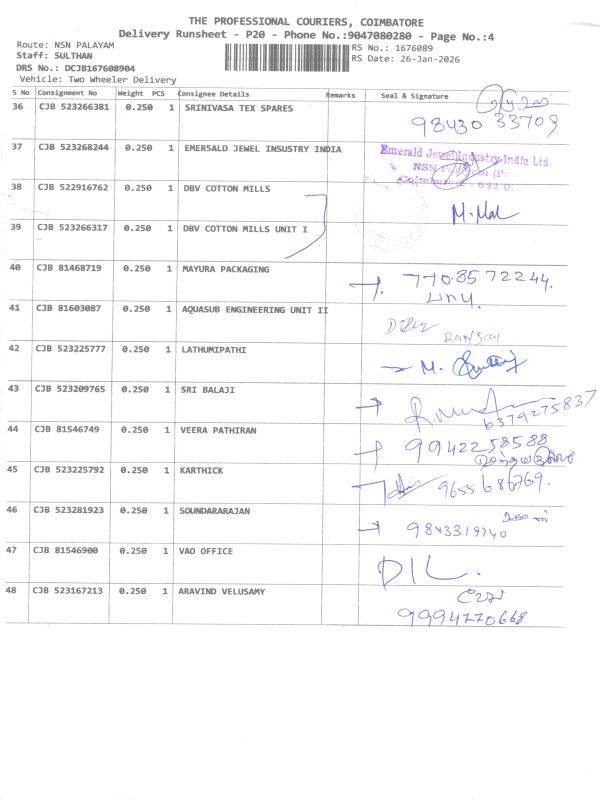 THE PROFESSIONAL COURIERS, COIMBATORE
Delivery Runsheet - P20 - Phone No.:9047080280 - Page No.:4
Route: NSN PALAYAM
Staff: SULTHAN
DRS No.: DCJB167608904
Vehicle: Two Wheeler Delivery
RS No.: 1676089
RS Date: 26-Jan-2026
S No Consignment No Weight PCS Consignee Details Remarks Seal & Signature
36 CJB 523266381 0.250 1 SRINIVASA TEX SPARES
98430 33703
37 CJB 523268244 0.250 1 EMERSALD JEWEL INSUSTRY INDIA
Emerald Jewel Industry India Ltd.
38 CJB 522916762 0.250 1 DBV COTTON MILLS
39 CJB 523266317 0.250 1 DBV COTTON MILLS UNIT I
40 CJB 81468719 0.250 1 MAYURA PACKAGING
41 CJB 81603087 0.250 1 AQUASUB ENGINEERING UNIT II
42 CJB 523225777 0.250 1 LATHUMIPATHI
M.
43 CJB 523209765 0.250 1 SRI BALAJI
6379275837
44 CJB 81546749 0.250 1 VEERA PATHIRAN
9942258588
45 CJB 523225792 0.250 1 KARTHICK
9655686769.
46 CJB 523281923 0.250 1 SOUNDARARAJAN
47 CJB 81546900 0.250 1 VAO OFFICE
DIL.
48 CJB 523167213 0.250 1 ARAVIND VELUSAMY
9994770668